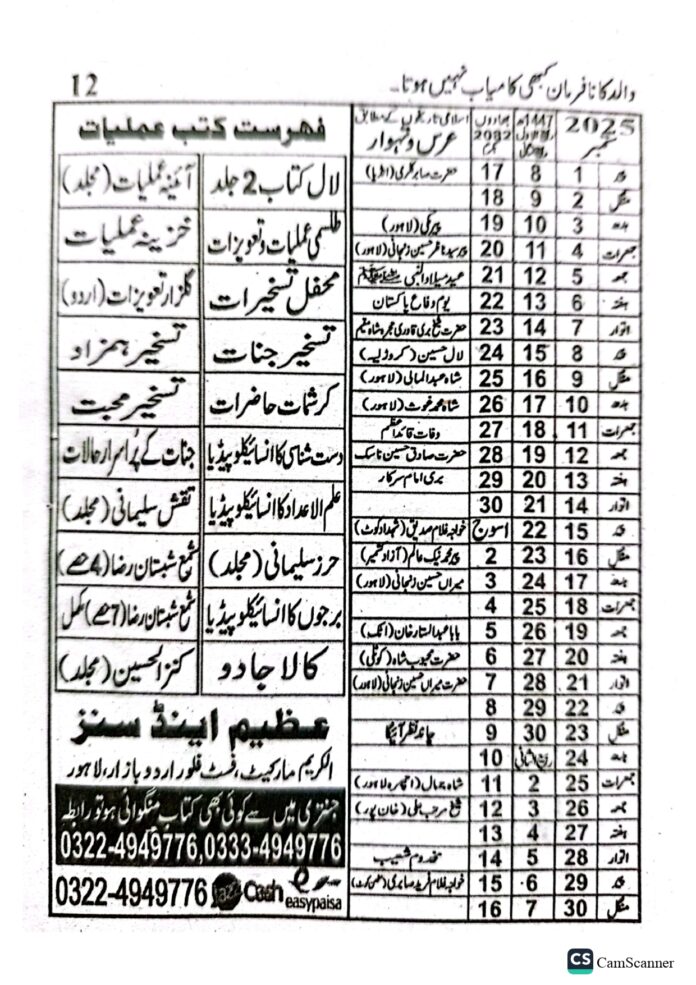 12
والد کا نافرمان کبھی کامیاب نہیں ہوتا۔
2025 ستمبر | 1447ھ ربیع الاول ربیع الثانی | بھادوں 2082 بکرمی | اسلامی تاریخوں کے مطابق عرس و تہوار
پیر 1 8 17 حضرت صابر کلیری (انڈیا)
منگل 2 9 18
بدھ 3 10 19 پیر مکی (لاہور)
جمعرات 4 11 20 پیر سید ناظر حسین زنجانی (لاہور)
جمعہ 5 12 21 عید میلاد النبی ﷺ
ہفتہ 6 13 22 یوم دفاع پاکستان
اتوار 7 14 23 حضرت شیخ بری قادری حجرہ شاہ مقیم
پیر 8 15 24 لال حسین (کروڑ لیہ)
منگل 9 16 25 شاہ عبدالمالی (لاہور)
بدھ 10 17 26 شاہ محمد غوث (لاہور)
جمعرات 11 18 27 وفات قائداعظم
جمعہ 12 19 28 حضرت صادق حسین ناسک
ہفتہ 13 20 29 بری امام سرکار
اتوار 14 21 30
پیر 15 22 اسوج خواجہ غلام صدیق (شہدادکوٹ)
منگل 16 23 2 پیر محمد نیک عالم (آزاد کشمیر)
بدھ 17 24 3 میراں حسین زنجانی (لاہور)
جمعرات 18 25 4
جمعہ 19 26 5 بابا عبدالستار خان (اٹک)
ہفتہ 20 27 6 حضرت محبوب شاہ (کوٹلی)
اتوار 21 28 7 حضرت میراں حسین زنجانی (لاہور)
پیر 22 29 8
منگل 23 30 9 چاند نظر آئیگا
بدھ 24 ربیع الثانی 10
جمعرات 25 2 11 شاہ جمال (اچھرہ لاہور)
جمعہ 26 3 12 شیخ مرحب علی (خان پور)
ہفتہ 27 4 13
اتوار 28 5 14 مخدوم شعیب
پیر 29 6 15 خواجہ غلام فرید صابری
منگل 30 7 16
فہرست کتب عملیات
لال کتاب 2 جلد | آئینہ عملیات (مجلد)
طلسمی عملیات و تعویزات | خزینہ عملیات
محفل تسخیرات | گلزار تعویزات (اردو)
تسخیر جنات | تسخیر ہمزاد
کرشمات حاضرات | تسخیر محبت
دست شناسی کا انسائیکلوپیڈیا | جنات کے پراسرار حالات
علم الاعداد کا انسائیکلوپیڈیا | نقش سلیمانی (مجلد)
حرز سلیمانی (مجلد) | شمع شبستان رضا (4 حصے)
برجوں کا انسائیکلوپیڈیا | شمع شبستان رضا (7 حصے) مکمل
کالا جادو | کنز الحسین (مجلد)
عظیم اینڈ سنز
الکریم مارکیٹ، فسٹ فلور اردو بازار، لاہور
جنتری میں سے کوئی بھی کتاب منگوانی ہو تو رابطہ
0322-4949776,0333-4949776
0322-4949776 Jazz Cash easypaisa
CS CamScanner